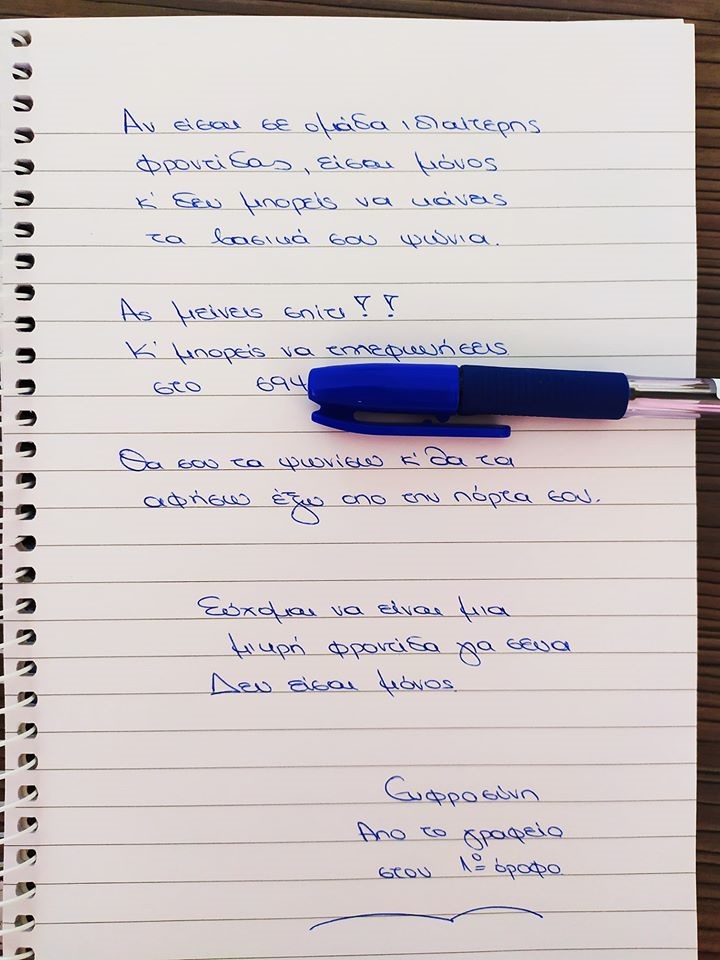 Αν είσαι σε ομάδα ιδιαίτερης
φροντίδας, είσαι μόνος
κ' δεν μπορείς να κάνεις
τα βασικά σου ψώνια.
Ας μείνεις σπίτι!!
Κ' μπορείς να τηλεφωνήσεις
στο 694
Θα σου τα ψωνίσω κ' θα τα
αφήσω έξω απο την πόρτα σου.
Εύχομαι να είναι μια
μικρή φροντίδα για σενα
Δεν είσαι μόνος
Ευφροσύνη
Απο το γραφείο
στον 1º όροφο